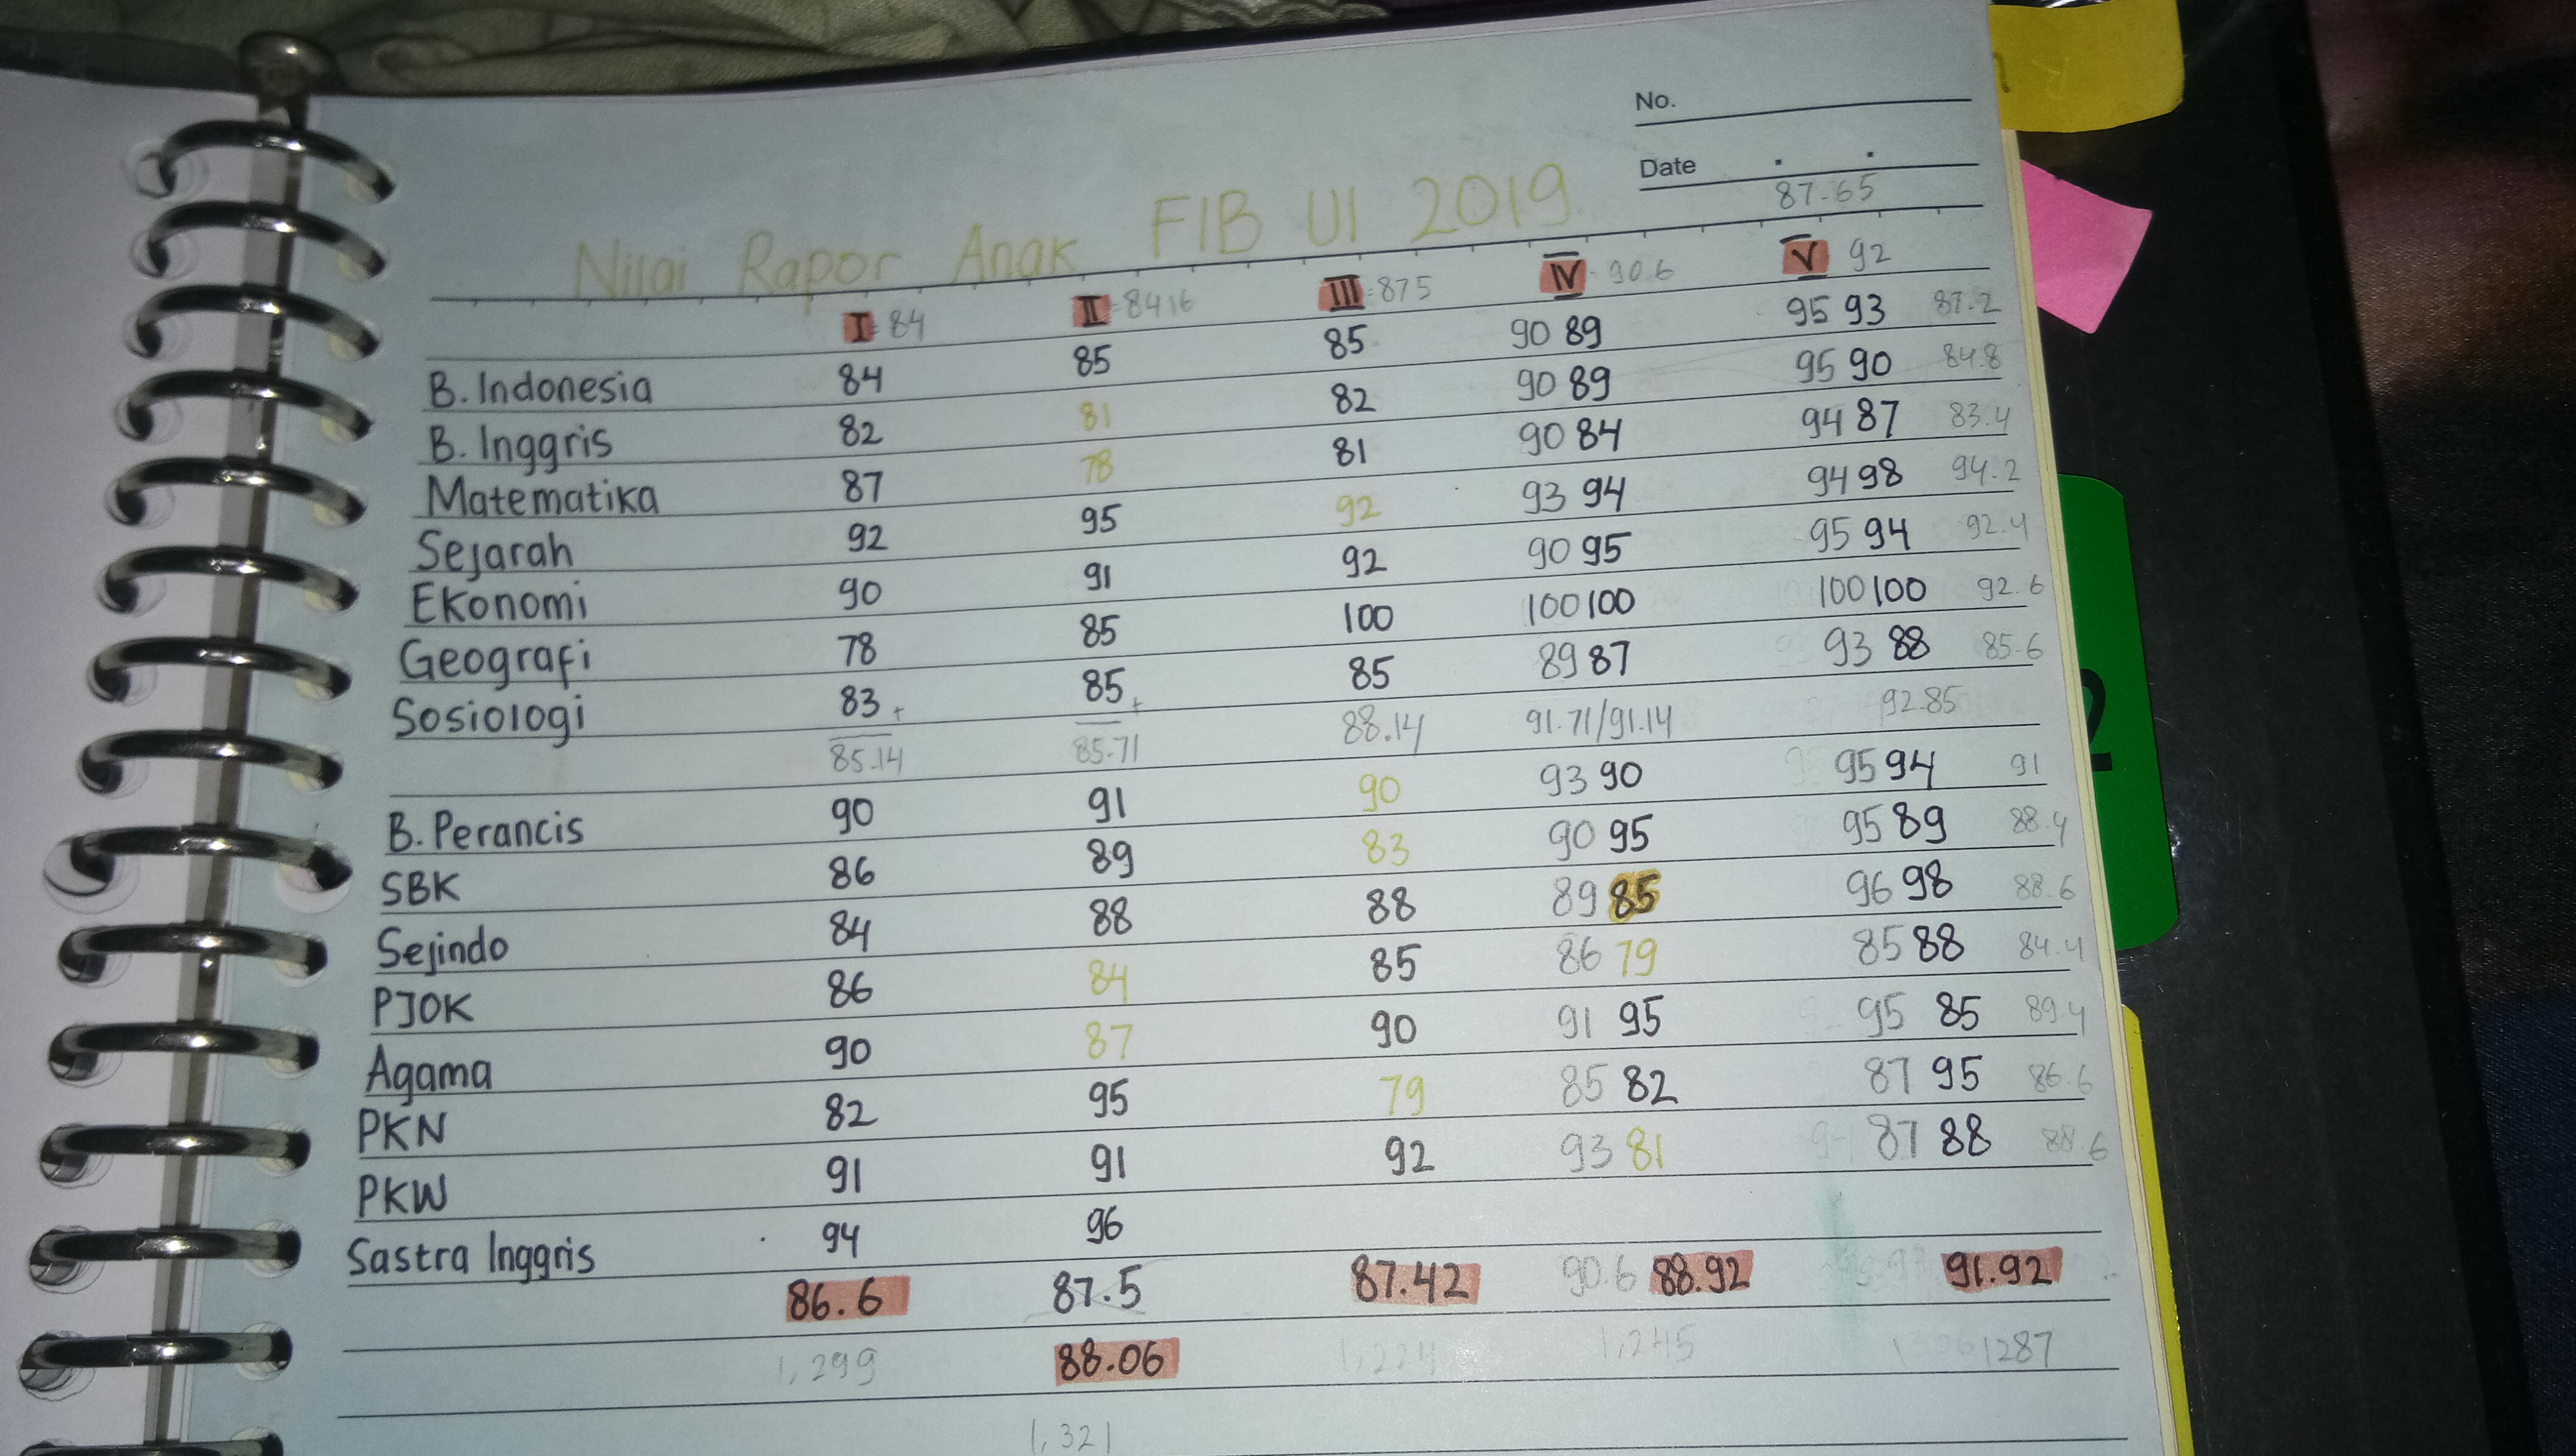 No.
Date
87.65
Nilai Rapor Anak FIB UI 2019
I = 84 II = 84.16 III = 87.5 IV 90.6 V 92
B. Indonesia 84 85 85 90 89 95 93 87.2
B. Inggris 82 81 82 90 89 95 90 84.8
Matematika 87 78 81 90 84 94 87 83.4
Sejarah 92 95 92 93 94 94 98 94.2
Ekonomi 90 91 92 90 95 95 94 92.4
Geografi 78 85 100 100 100 100 100 92.6
Sosiologi 83 + 85 + 85 89 87 93 88 85.6
85.14 85.71 88.14 91.71/91.14 92.85
B. Perancis 90 91 90 93 90 95 94 91
SBK 86 89 83 90 95 95 89 88.4
Sejindo 84 88 88 89 85 96 98 88.6
PJOK 86 84 85 86 79 85 88 84.4
Agama 90 87 90 91 95 95 85 89.4
PKN 82 95 79 85 82 87 95 86.6
PKW 91 91 92 93 81 87 88 88.6
Sastra Inggris 94 96
86.6 87.5 87.42 90.6 88.92 91.92
1,299 88.06 1,224 1,245 1287
1,321